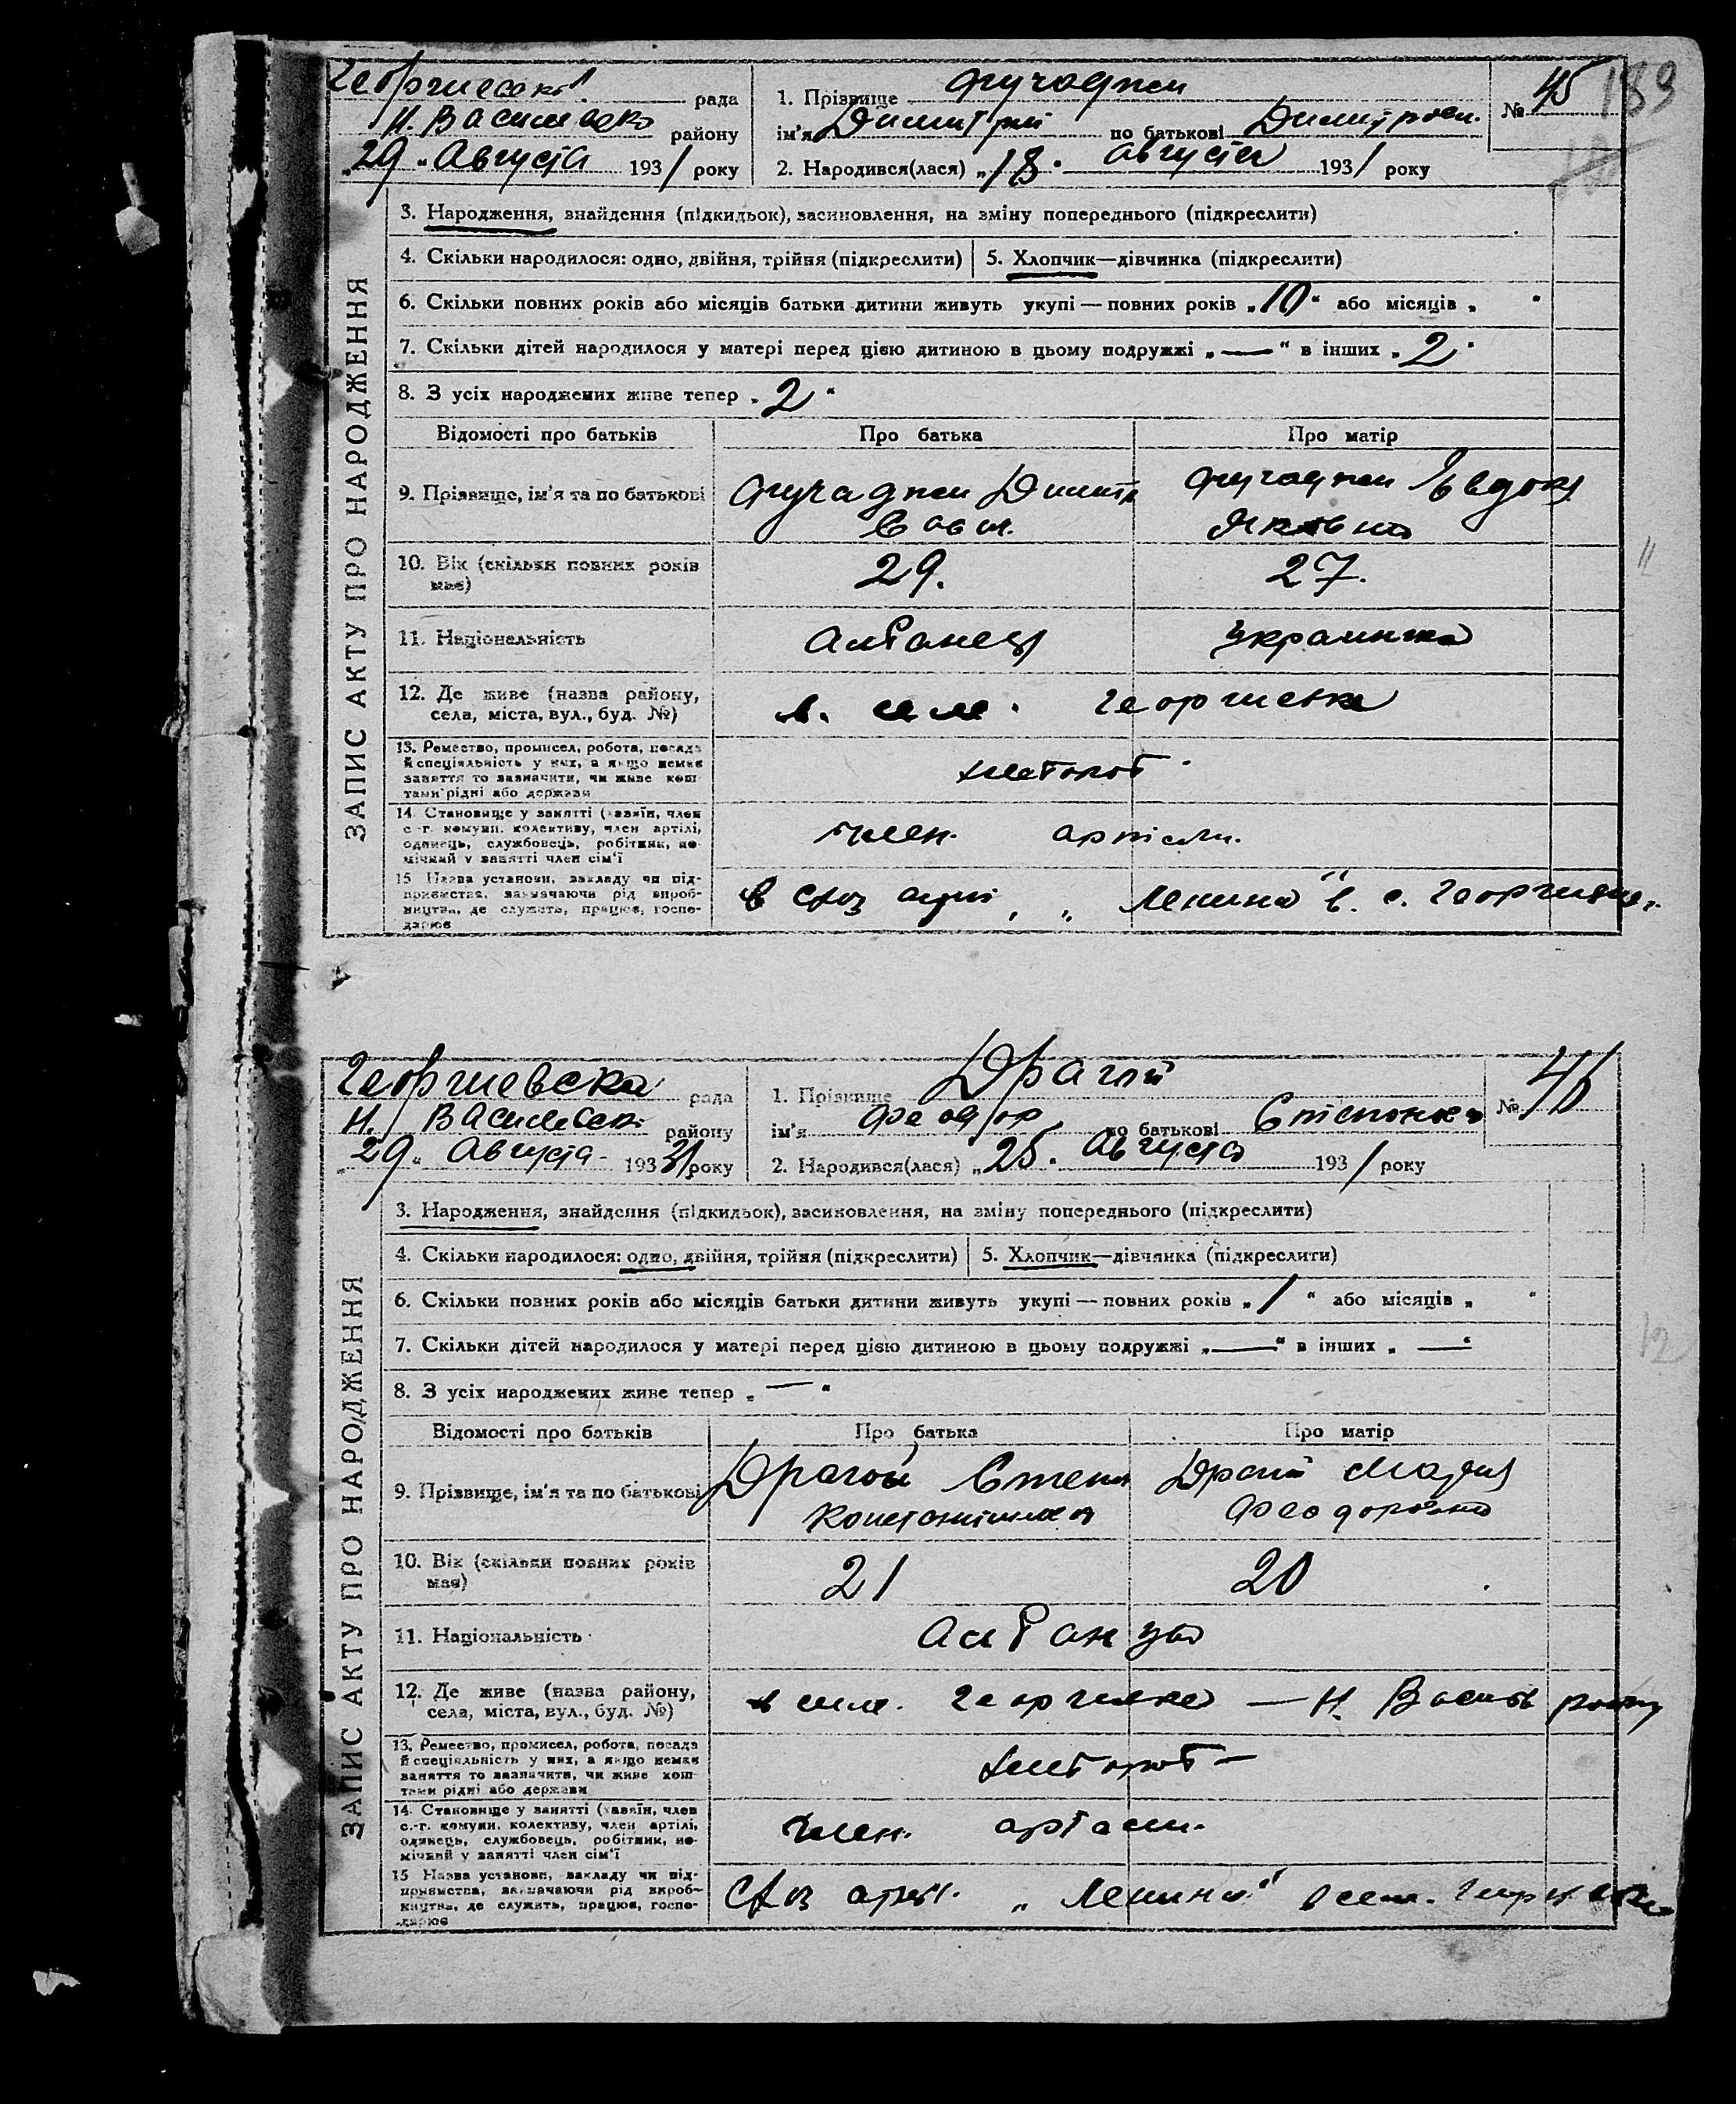 189
Георгиевск рада
Н. Василевск району
„29„ Августа 1931 року
1. Прізвище Фучаджи
ім'я Димитрий по батькові Димитриев.
2. Народився(лася) „18„ августа 1931 року
№ 45
ЗАПИС АКТУ ПРО НАРОДЖЕННЯ
3. Народження, знайдення (підкидьок), засиновлення, на зміну попереднього (підкреслити)
4. Скільки народилося: одно, двійня, трійня (підкреслити) 5. Хлопчик—дівчинка (підкреслити)
6. Скільки повних років або місяців батьки дитини живуть укупі — повних років „10“ або місяців „ “
7. Скільки дітей народилося у матері перед цією дитиною в цьому подружжі „—“ в інших „2“
8. З усіх народжених живе тепер „2“
Відомості про батьків Про батька Про матір
9. Прізвище, ім'я та по батькові Фучаджи Димитр Фучаджи Евдок
Яковна
10. Вік (скільки повних років 29. 27.
має)
11. Національність Албанец Украинка
12. Де живе (назва району, в. селе. Георгиевка
села, міста, вул., буд. №)
13. Ремество, промисел, робота, посада
й спеціяльність у них, а якщо немає
заняття то зазначити, чи живе кош-
тами рідні або держави
хлебороб
14. Становище у занятті (хазяїн, член
с.-г. комуни, колективу, член артілі,
одинець, службовець, робітник, по-
мічний у занятті член сім'ї
член артели.
15 Назва установи, закладу чи під-
приємства, зазначаючи рід вироб-
ництва, де служить, працює, госпо-
дарює
в с/хоз арт. „Ленина“ в. с. Георгиевке
Георгиевска рада
Н. Василевск району
„29„ Августа 1931 року
1. Прізвище Драгой
ім'я Феодор по батькові Степанов
2. Народився(лася) „25. Августа 1931 року
№ 46
ЗАПИС АКТУ ПРО НАРОДЖЕННЯ
3. Народження, знайдення (підкидьок), засиновлення, на зміну попереднього (підкреслити)
4. Скільки народилося: одно, двійня, трійня (підкреслити) 5. Хлопчик—дівчинка (підкреслити)
6. Скільки повних років або місяців батьки дитини живуть укупі — повних років „1“ або місяців „ “
7. Скільки дітей народилося у матері перед цією дитиною в цьому подружжі „—“ в інших „—“
8. З усіх народжених живе тепер „—“
Відомості про батьків Про батька Про матір
9. Прізвище, ім'я та по батькові Драгой Степан Драгой Мария
Константинов Феодоровна
10. Вік (скільки повних років 21 20
має)
11. Національність Албанцы
12. Де живе (назва району, в селе. Георгиевке — Н. Васильев району
села, міста, вул., буд. №)
13. Ремество, промисел, робота, посада
й спеціяльність у них, а якщо немає
заняття то зазначити, чи живе кош-
тами рідні або держави
хлебороб —
14. Становище у занятті (хазяїн, член
с.-г. комуни, колективу, член артілі,
одинець, службовець, робітник, по-
мічний у занятті член сім'ї
член. артели.
15 Назва установи, закладу чи під-
приємства, зазначаючи рід вироб-
ництва, де служить, працює, госпо-
дарює
С/хоз арт. „Ленина“ в сел. Георгиевке
12